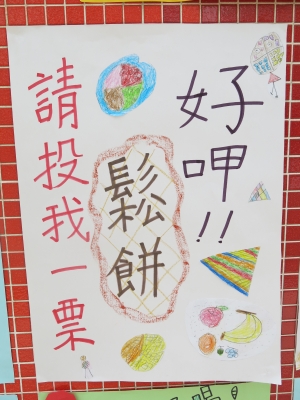 好呷!!
鬆餅
請投我一票